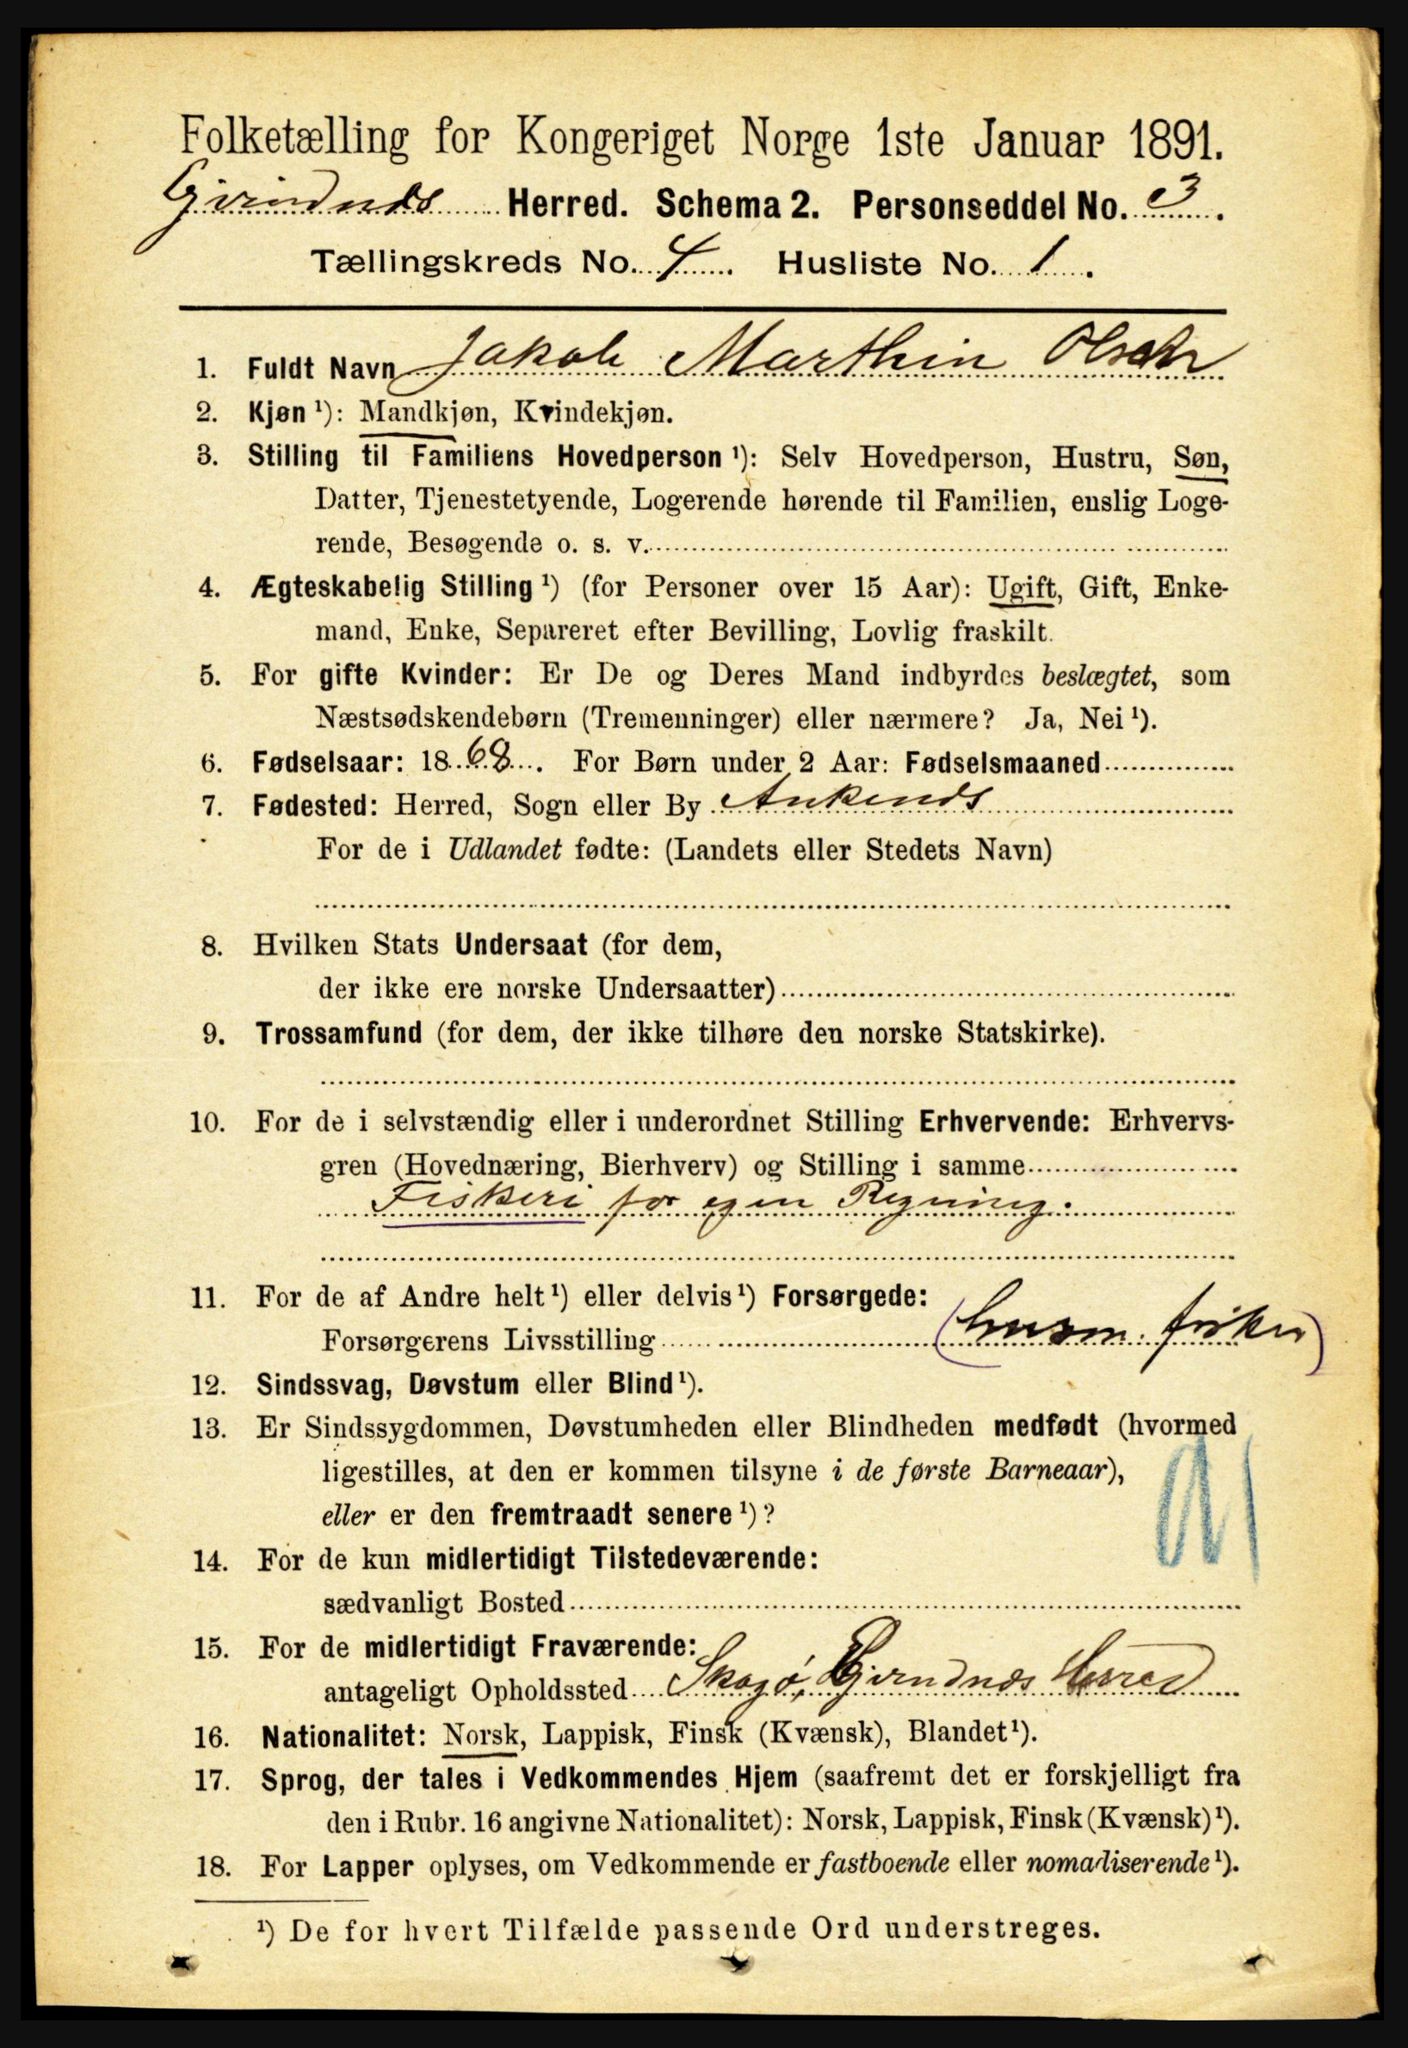 Folketælling for Kongeriget Norge 1ste Januar 1891.
Herred. Schema 2. Personseddel No. 3.
Tællingskreds No. 4. Husliste No. 1.
1. Fuldt Navn Jakob Marthin Olsen
2. Kjøn ¹): Mandkjøn, Kvindekjøn.
3. Stilling til Familiens Hovedperson ¹): Selv Hovedperson, Hustru, Søn,
Datter, Tjenestetyende, Logerende hørende til Familien, enslig Loge-
rende, Besøgende o. s. v.
4. Ægteskabelig Stilling ¹) (for Personer over 15 Aar): Ugift, Gift, Enke-
mand, Enke, Separeret efter Bevilling, Lovlig fraskilt.
5. For gifte Kvinder: Er De og Deres Mand indbyrdes beslægtet, som
Næstsødskendebørn (Tremenninger) eller nærmere? Ja, Nei ¹).
6. Fødselsaar: 1868. For Børn under 2 Aar: Fødselsmaaned
7. Fødested: Herred, Sogn eller By Ankenes
For de i Udlandet fødte: (Landets eller Stedets Navn)
8. Hvilken Stats Undersaat (for dem,
der ikke ere norske Undersaatter)
9. Trossamfund (for dem, der ikke tilhøre den norske Statskirke).
10. For de i selvstændig eller i underordnet Stilling Erhvervende: Erhvervs-
gren (Hovednæring, Bierhverv) og Stilling i samme
Fiskeri for egen Regning.
11. For de af Andre helt ¹) eller delvis ¹) Forsørgede:
Forsørgerens Livsstilling (husm. fisker)
12. Sindssvag, Døvstum eller Blind ¹).
13. Er Sindssygdommen, Døvstumheden eller Blindheden medfødt (hvormed
ligestilles, at den er kommen tilsyne i de første Barneaar),
eller er den fremtraadt senere ¹)?
14. For de kun midlertidigt Tilstedeværende:
sædvanligt Bosted
15. For de midlertidigt Fraværende:
antageligt Opholdssted Skogö, Herred
16. Nationalitet: Norsk, Lappisk, Finsk (Kvænsk), Blandet ¹).
17. Sprog, der tales i Vedkommendes Hjem (saafremt det er forskjelligt fra
den i Rubr. 16 angivne Nationalitet): Norsk, Lappisk, Finsk (Kvænsk) ¹).
18. For Lapper oplyses, om Vedkommende er fastboende eller nomadiserende ¹).
¹) De for hvert Tilfælde passende Ord understreges.